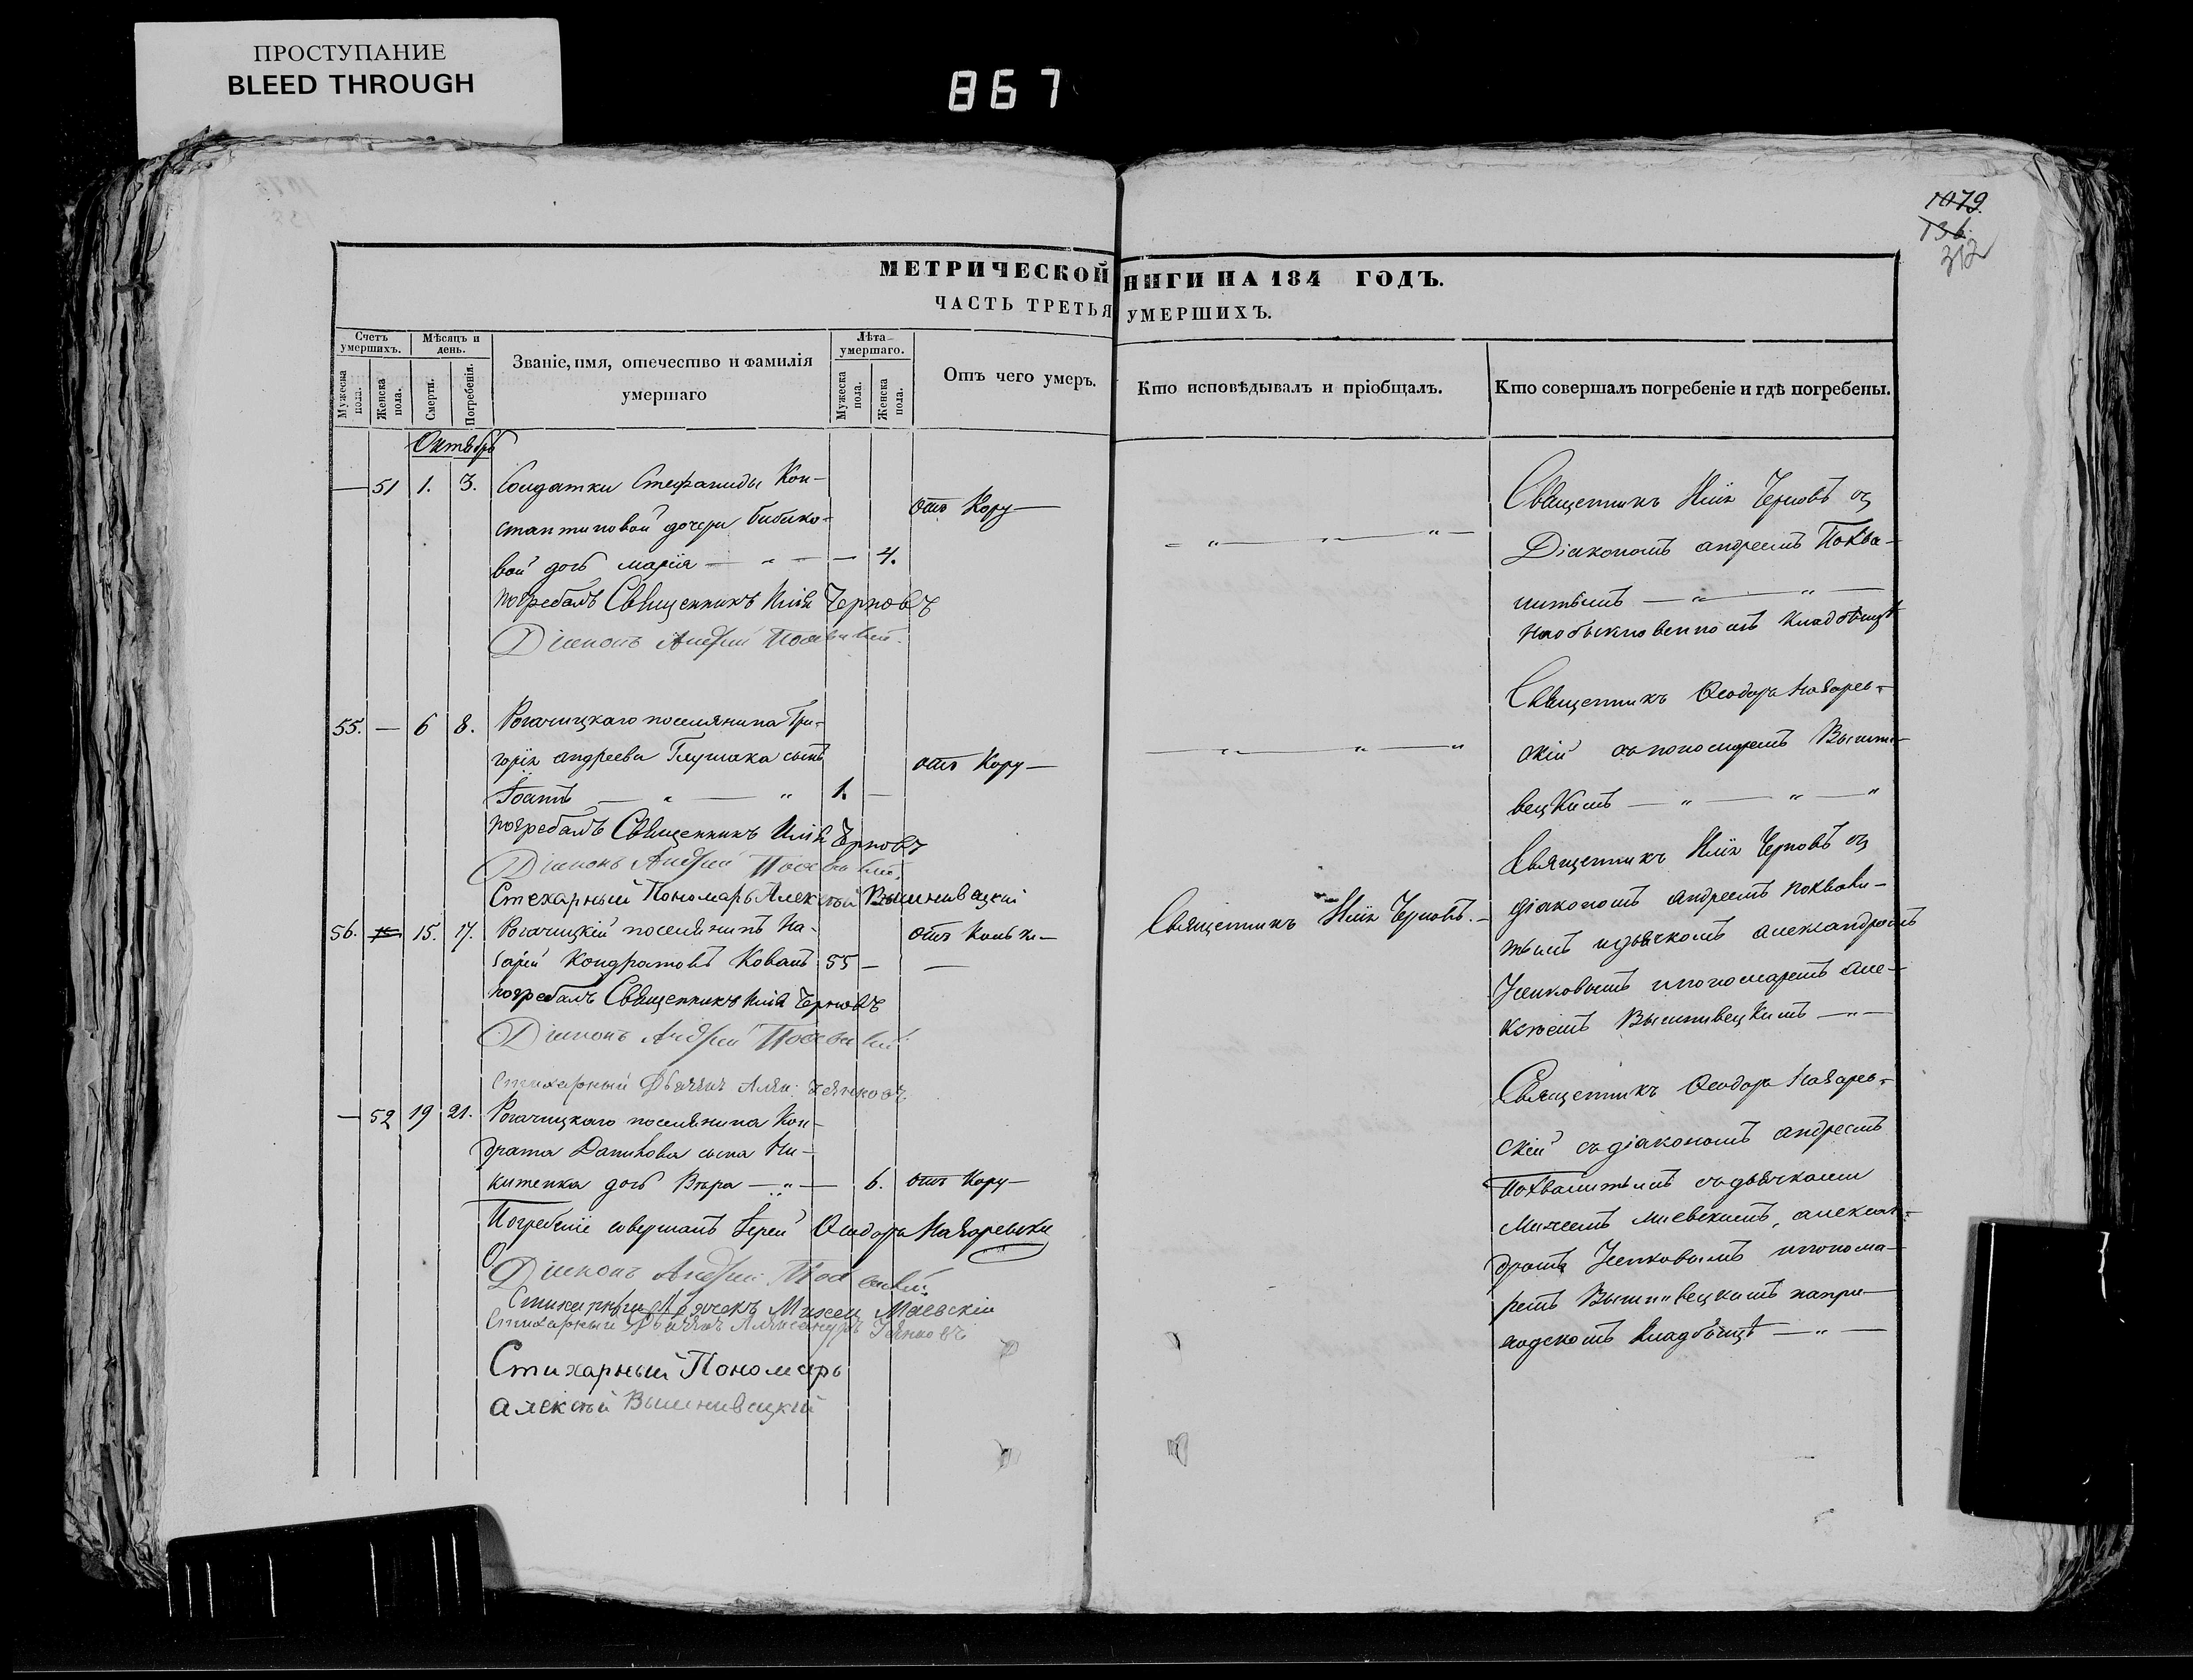 ПРОСТУПАНИЕ
BLEED THROUGH
867
1079.
136.
312
МЕТРИЧЕСКОЙ НИГИ НА 184 ГОДЪ.
ЧАСТЬ ТРЕТЬЯ УМЕРШИХЪ.
Счетъ умершихъ.
Мужеска пола.
Женска пола.
Мѣсяцъ и день.
Смерти.
Погребенія.
Званіе, имя, отечество и фамилія
умершаго
Лѣта умершаго.
Мужеска пола.
Женска пола.
Отъ чего умеръ.
Кто исповѣдывалъ и пріобщалъ.
Кто совершалъ погребеніе и гдѣ погребены.
Октябрь
— 51 1. 3. Солдатки Стефаниды Кон-
стантиновой дочери Бибико-
вой дочь Марія — 4.
отъ Кору—
погребалъ Священникъ Илія Черновъ
Діаконъ Андрей
Священникъ Илія Черновъ съ
Діакономъ Андреемъ Похва-
литымъ
на обыкновенномъ кладбищѣ
55. — 6 8. Рогачицкаго поселянина Гри-
горія Андреева Глушака сынъ
Іоаннъ — 1. —
отъ Кору—
погребалъ Священникъ Илія Черновъ
Діаконъ Андрей
Стехарный Пономарь Алексѣй Вышнивецкій
Священникъ Ѳеодоръ Назарев-
скій съ пономаремъ Вышни-
вецкимъ
56. 15. 17. Рогачицкій поселянинъ На-
зарій Кондратовъ Коваль 55 —
отъ Кольки—
погребалъ Священникъ Илія Черновъ
Діаконъ Андрей
Стихарный Дьячекъ
Священникъ Илія Черновъ.
Священникъ Илія Черновъ съ
діакономъ Андреемъ Похвали-
тымъ и дьячкомъ Александромъ
и пономаремъ Але-
ксѣемъ Вышнивецкимъ
— 52 19 21. Рогачицкаго поселянина Кон-
драта Данилова сына Ни-
китенка дочь Вѣра — 6. отъ Кору—
Погребеніе совершалъ Іерей Ѳеодоръ Назаревскій
Діаконъ Андрей
Стихарный Дьячекъ Михей Маевскій
Стихарный Дьячекъ Александръ
Стихарный Пономарь
Алексѣй Вышнивецкій
Священникъ Ѳеодоръ Назарев-
скій съ діакономъ Андреемъ
Похвалитымъ съ дьячками
Михеемъ Маевскимъ, Алексан-
дромъ и понома-
ремъ Вышнивецкимъ на при-
ходскомъ кладбищѣ